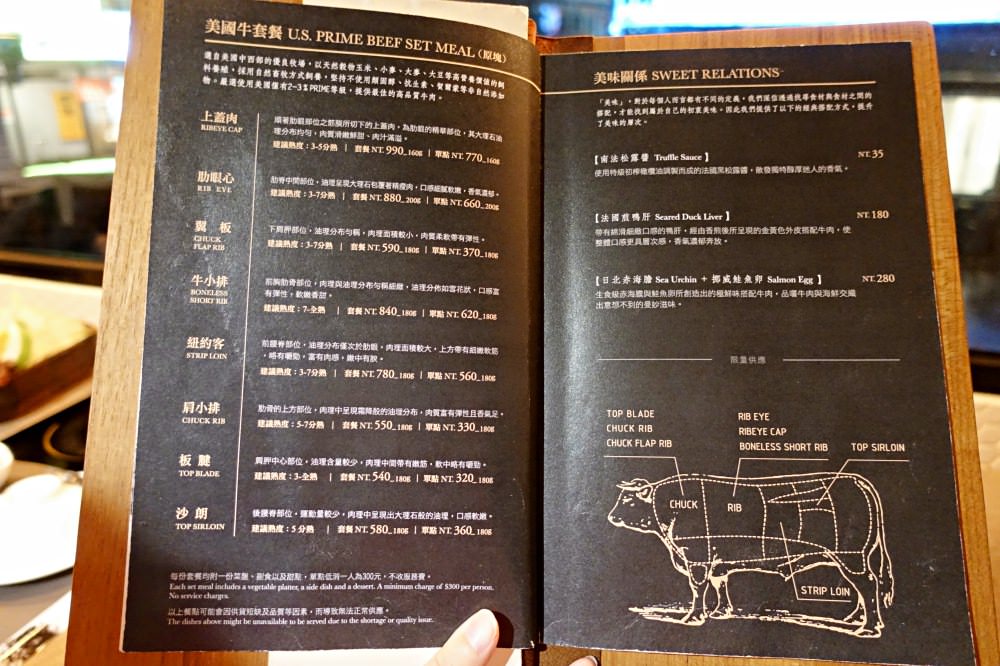 美國牛套餐 U.S. PRIME BEEF SET MEAL (原塊)
選自美國中西部的優良牧場，以天然穀物玉米、小麥、大麥、大豆等高營養價值的飼
料養殖，採用自然畜牧方式飼養，堅持不使用類固醇、抗生素、賀爾蒙等非自然添加
物。嚴選使用美國僅有2~3%PRIME等級，提供最佳的高品質牛肉。
上蓋肉
RIBEYE CAP
順著肋眼部位之筋膜所切下的上蓋肉，為肋眼的精華部位，其大理石油
理分布均勻，肉質滑嫩鮮甜、肉汁滿溢。
建議熟度：3-5分熟 | 套餐 NT. 990_160g | 單點 NT. 770_160g
肋眼心
RIB EYE
肋脊中間部位，油理呈現大理石包覆著精瘦肉，口感細膩軟嫩，香氣濃郁。
建議熟度：3-7分熟 | 套餐 NT. 880_200g | 單點 NT. 660_200g
翼 板
CHUCK
FLAP RIB
下肩胛部位，油理分布勻稱，肉理面積較小，肉質柔軟帶有彈性。
建議熟度：3-7分熟 | 套餐 NT. 590_180g | 單點 NT. 370_180g
牛小排
BONELESS
SHORT RIB
前胸肋骨部位，肉理與油理分布勻稱細緻，油理分佈如雪花狀，口感富
有彈性，軟嫩香甜。
建議熟度：7-全熟 | 套餐 NT. 840_180g | 單點 NT. 620_180g
紐約客
STRIP LOIN
前腰脊部位，油理分布僅次於肋眼，肉理面積較大，上方帶有細嫩軟筋
，略有嚼勁，富有肉感，嫩中有脆。
建議熟度：3-7分熟 | 套餐 NT. 780_180g | 單點 NT. 560_180g
肩小排
CHUCK RIB
肋骨的上方部位，肉理中呈現霜降般的油理分布，肉質富有彈性且香氣足。
建議熟度：5-7分熟 | 套餐 NT. 550_180g | 單點 NT. 330_180g
板 腱
TOP BLADE
肩胛中心部位，油理含量較少，肉理中間帶有嫩筋，軟中略有嚼勁。
建議熟度：3-全熟 | 套餐 NT. 540_180g | 單點 NT. 320_180g
沙 朗
TOP SIRLOIN
後腰脊部位，運動量較少，肉理中呈現出大理石般的油理，口感軟嫩。
建議熟度：5 分熟 | 套餐 NT. 580_180g | 單點 NT. 360_180g
每份套餐均附一份菜盤、副食以及甜點，單點低消一人為300元，不收服務費。
Each set meal includes a vegetable platter, a side dish and a dessert. A minimum charge of $300 per person.
No service charges.
以上餐點可能會因供貨短缺及品質等因素，而導致無法正常供應。
The dishes above might be unavailable to be served due to the shortage or quality issue.
美味關係 SWEET RELATIONS
「美味」，對於每個人而言都有不同的定義，我們深信透過找尋食材與食材之間的
搭配，才能找到屬於自己的極致美味。因此我們提供了以下的經典搭配方式，提升
了美味的層次。
【南法松露醬 Truffle Sauce】 NT. 35
使用特級初榨橄欖油調製而成的法國黑松露醬，散發獨特醇厚迷人的香氣。
【法國煎鴨肝 Seared Duck Liver】 NT. 180
帶有綿滑細緻口感的鴨肝，經由香煎後所呈現的金黃色外皮搭配牛肉，使
整體口感更具層次感，香氣濃郁奔放。
【日北赤海膽 Sea Urchin + 挪威鮭魚卵 Salmon Egg】 NT. 280
生食級赤海膽與鮭魚卵所創造出的極鮮味搭配牛肉，品嚐牛肉與海鮮交織
出意想不到的曼妙滋味。
限量供應
TOP BLADE
CHUCK RIB
CHUCK FLAP RIB
RIB EYE
RIBEYE CAP
BONELESS SHORT RIB
TOP SIRLOIN
CHUCK
RIB
STRIP LOIN